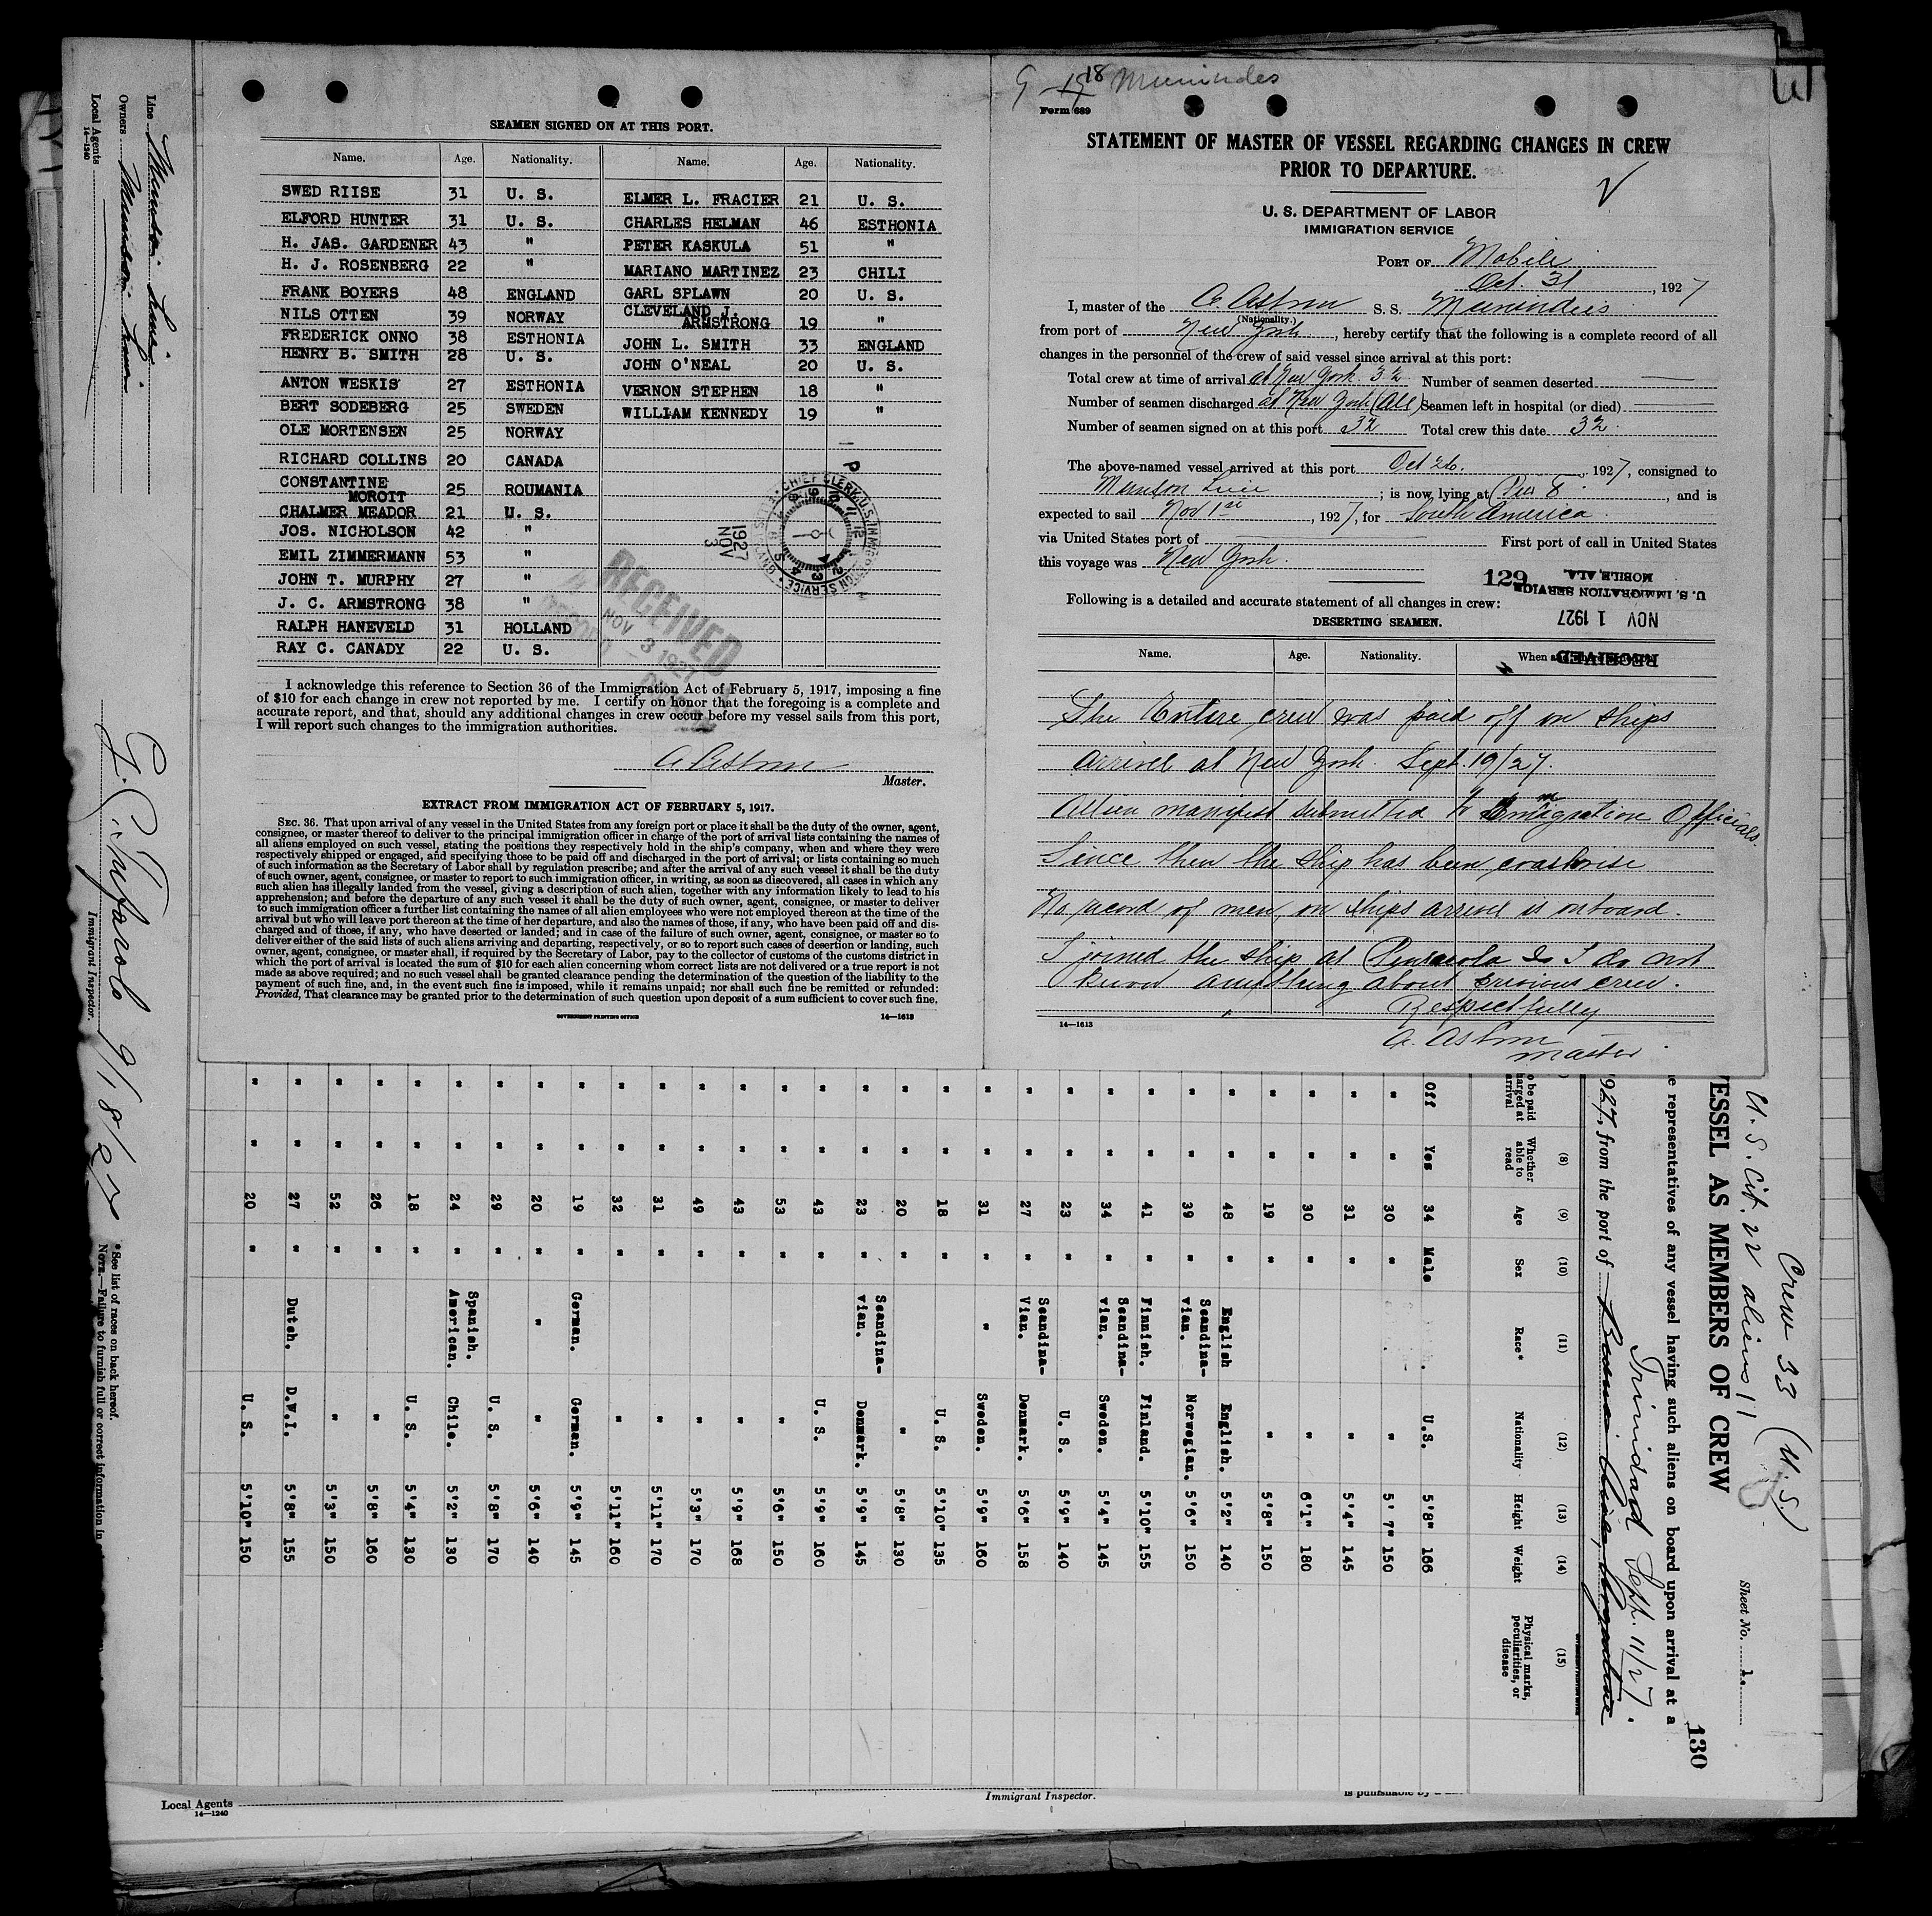 SEAMEN SIGNED ON AT THIS PORT.
Name. Age. Nationality. Name. Age. Nationality.
SWED RIISE 31 U. S. ELMER L. FRACIER 21 U. S.
ELFORD HUNTER 31 U. S. CHARLES HELMAN 46 ESTHONIA
H. JAS. GARDENER 43 " PETER KASKULA 51 "
H. J. ROSENBERG 22 " MARIANO MARTINEZ 23 CHILI
FRANK BOYERS 48 ENGLAND GARL SPLAWN 20 U. S.
NILS OTTEN 39 NORWAY CLEVELAND J. ARMSTRONG 19 "
FREDERICK ONNO 38 ESTHONIA JOHN L. SMITH 33 ENGLAND
HENRY B. SMITH 28 U. S. JOHN O'NEAL 20 U. S.
ANTON WESKIS 27 ESTHONIA VERNON STEPHEN 18 "
BERT SODEBERG 25 SWEDEN WILLIAM KENNEDY 19 "
OLE MORTENSEN 25 NORWAY
RICHARD COLLINS 20 CANADA
CONSTANTINE
MOROIT 25 ROUMANIA
CHALMER MEADOR 21 U. S.
JOS. NICHOLSON 42 "
EMIL ZIMMERMANN 53 "
JOHN T. MURPHY 27 "
J. C. ARMSTRONG 38 "
RALPH HANEVELD 31 HOLLAND
RAY C. CANADY 22 U. S.
1927 NOV 3
RECEIVED
NOV 3 1927
I acknowledge this reference to Section 36 of the Immigration Act of February 5, 1917, imposing a fine
of $10 for each change in crew not reported by me. I certify on honor that the foregoing is a complete and
accurate report, and that, should any additional changes in crew occur before my vessel sails from this port,
I will report such changes to the immigration authorities.
A Astrm
Master.
EXTRACT FROM IMMIGRATION ACT OF FEBRUARY 5, 1917.
SEC. 36. That upon arrival of any vessel in the United States from any foreign port or place it shall be the duty of the owner, agent,
consignee, or master thereof to deliver to the principal immigration officer in charge of the port of arrival lists containing the names of
all aliens employed on such vessel, stating the positions they respectively hold in the ship's company, when and where they were
respectively shipped or engaged, and specifying those to be paid off and discharged in the port of arrival; or lists containing so much
of such information as the Secretary of Labor shall by regulation prescribe; and after the arrival of any such vessel it shall be the duty
of such owner, agent, consignee, or master to report to such immigration officer, in writing, as soon as discovered, all cases in which any
such alien has illegally landed from the vessel, giving a description of such alien, together with any information likely to lead to his
apprehension; and before the departure of any such vessel it shall be the duty of such owner, agent, consignee, or master to deliver
to such immigration officer a further list containing the names of all alien employees who were not employed thereon at the time of the
arrival but who will leave port thereon at the time of her departure, and also the names of those, if any, who have been paid off and dis-
charged and of those, if any, who have deserted or landed; and in case of the failure of such owner, agent, consignee, or master so to
deliver either of the said lists of such aliens arriving and departing, respectively, or so to report such cases of desertion or landing, such
owner, agent, consignee, or master shall, if required by the Secretary of Labor, pay to the collector of customs of the customs district in
which the port of arrival is located the sum of $10 for each alien concerning whom correct lists are not delivered or a true report is not
made as above required; and no such vessel shall be granted clearance pending the determination of the question of the liability to the
payment of such fine, and, in the event such fine is imposed, while it remains unpaid; nor shall such fine be remitted or refunded:
Provided, That clearance may be granted prior to the determination of such question upon deposit of a sum sufficient to cover such fine.
GOVERNMENT PRINTING OFFICE 14—1613
18 Munindes
Form 689
STATEMENT OF MASTER OF VESSEL REGARDING CHANGES IN CREW
PRIOR TO DEPARTURE.
U. S. DEPARTMENT OF LABOR
IMMIGRATION SERVICE
PORT OF Mobile
Oct. 31, 1927
I, master of the A. Astrm S. S. Munindies
(Nationality.)
from port of New York, hereby certify that the following is a complete record of all
changes in the personnel of the crew of said vessel since arrival at this port:
Total crew at time of arrival at New York 32 Number of seamen deserted —
Number of seamen discharged at New York (All) Seamen left in hospital (or died) —
Number of seamen signed on at this port 32 Total crew this date 32.
The above-named vessel arrived at this port Oct 26., 1927, consigned to
Munson Line; is now lying at Pier 8, and is
expected to sail Nov 1st, 1927, for South America
via United States port of — First port of call in United States
this voyage was New York.
129
U. S. IMMIGRATION SERVICE
MOBILE, ALA
NOV 1 1927
RECEIVED
Following is a detailed and accurate statement of all changes in crew:
DESERTING SEAMEN.
Name. Age. Nationality. When
The Entire crew was paid off on ships
arrival at New York. Sept. 19/27.
Alien manifest submitted to Immigration Officials.
Since then the ship has been coastwise
No record of men on ships arrival is onboard.
I joined the ship at Pensacola So I do not
know anything about previous crew.
Respectfully
A. Astrm
master
14—1613
Line Munson Line
Owners Munson Line
Local Agents
14—1240
9/18/27
Immigrant Inspector.
*See list of races on back hereof.
NOTE.—Failure to furnish full or correct information in
Crew 33 (U.S.)
U.S. Cit. 22 aliens 11
Sheet No. 1.
130
ESSEL AS MEMBERS OF CREW
representatives of any vessel having such aliens on board upon arrival at a
Trinidad Sept. 11/27.
927, from the port of
(8) (9) (10) (11) (12) (13) (14) (15)
o be paid
harged at
arrival Whether able to read Age Sex Race* Nationality Height Weight Physical marks, peculiarities, or disease
Off Yes 34 Male U.S. 5'8" 166
" " 30 " " 5'7" 150
" " 31 " " 5'4" 145
" " 30 " " 6'1" 180
" " 19 " " 5'8" 150
" " 48 " English English. 5'2" 140
" " 39 " Scandina-vian. Norwegian. 5'6" 150
" " 41 " Finnish. Finland. 5'10" 155
" " 34 " Scandina-vian. Sweden. 5'4" 145
" " 23 " U. S. 5'9" 140
" " 27 " Scandina-Vian. Denmark. 5'6" 158
" " 31 " " Sweden. 5'9" 160
" " 18 " U. S. 5'10" 135
" " 20 " " 5'8" 130
" " 23 " Scandina-vian. Denmark. 5'9" 145
" " 43 " U. S. 5'9" 160
" " 53 " " 5'6" 150
" " 43 " " 5'9" 168
" " 49 " " 5'3" 170
" " 31 " " 5'11" 170
" " 32 " " 5'11" 160
" " 19 " German. German. 5'9" 145
" " 20 " " " 5'6" 140
" " 29 " U. S. 5'8" 170
" " 24 " Spanish. American. Chile. 5'2" 130
" " 18 " U. S. 5'4" 130
" " 26 " " 5'8" 160
" " 52 " " 5'3" 150
" " 27 " Dutch. D.W.I. 5'8" 155
" " 20 " U. S. 5'10" 150
Local Agents
14—1240
Immigrant Inspector.